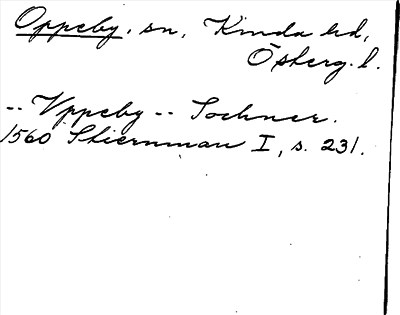 Oppeby, sn, Kinda hd,
Östberg. l.
-- Vppeby -- Sochner.
1560 Stiernman I, s. 231.